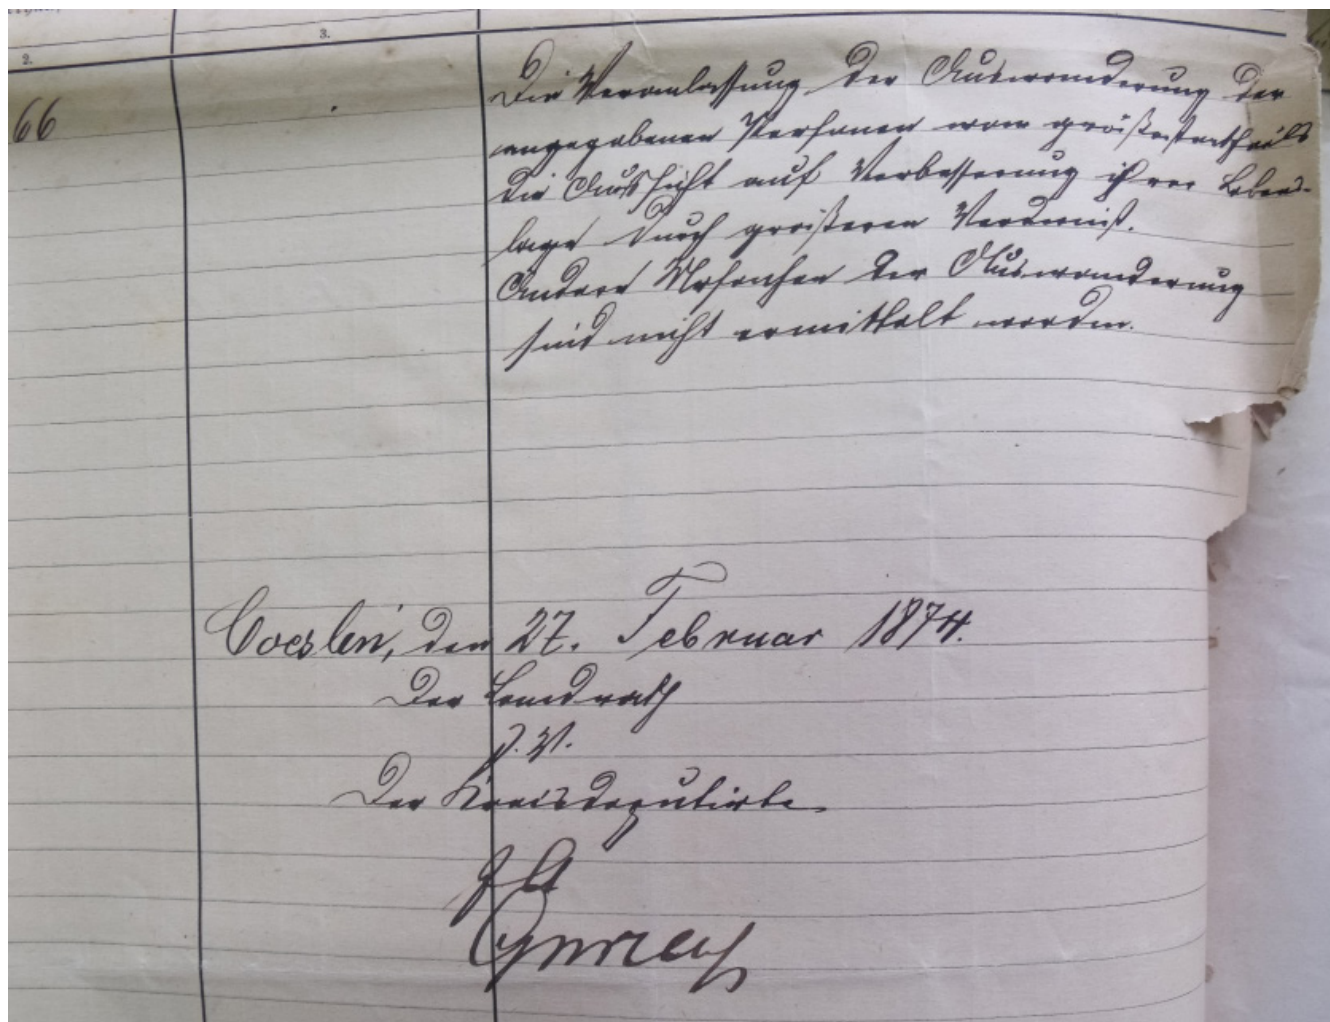 2.
3.
66
Die Veranlassung der Auswanderung der
angegebenen Personen war größestentheils
die Aussicht auf Verbesserung ihrer Lebens-
lage durch größeren Verdienst.
Andere Ursachen der Auswanderung
sind nicht ermittelt worden.
Coeslin, den 27. Februar 1874.
Der Landrath
J. V.
Der Kreisdeputirte